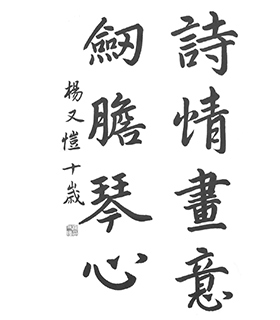 詩情畫意
劒膽琴心
楊又愷十歲